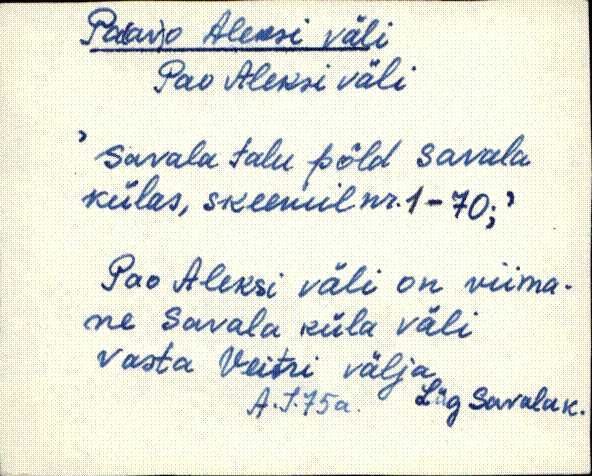 Paavo Aleksi väli
Pao Aleksi väli
' Savala talu põld Savala
külas, skeemil nr. 1-70;'
Pao Aleksi väli on viima-
ne Savala küla väli
vasta Veitri välja
A.J.75a. Lüg Savala k.